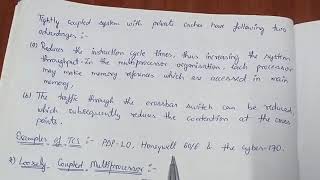 Tightly coupled system with private caches have following two
advantages :-
(a) Reduces the instruction cycle times, thus increasing the system
throughput. In the multiprocessor organisation, each processor
may make memory references which are accessed in main
memory.
(b) The traffic through the crossbar switch can be reduced,
which subsequently reduces the contention at the cross
points.
Examples of TCS :- PDP-10, Honeywell 60/6 & the cyber-170.
2) Loosely Coupled Multiprocessor :-